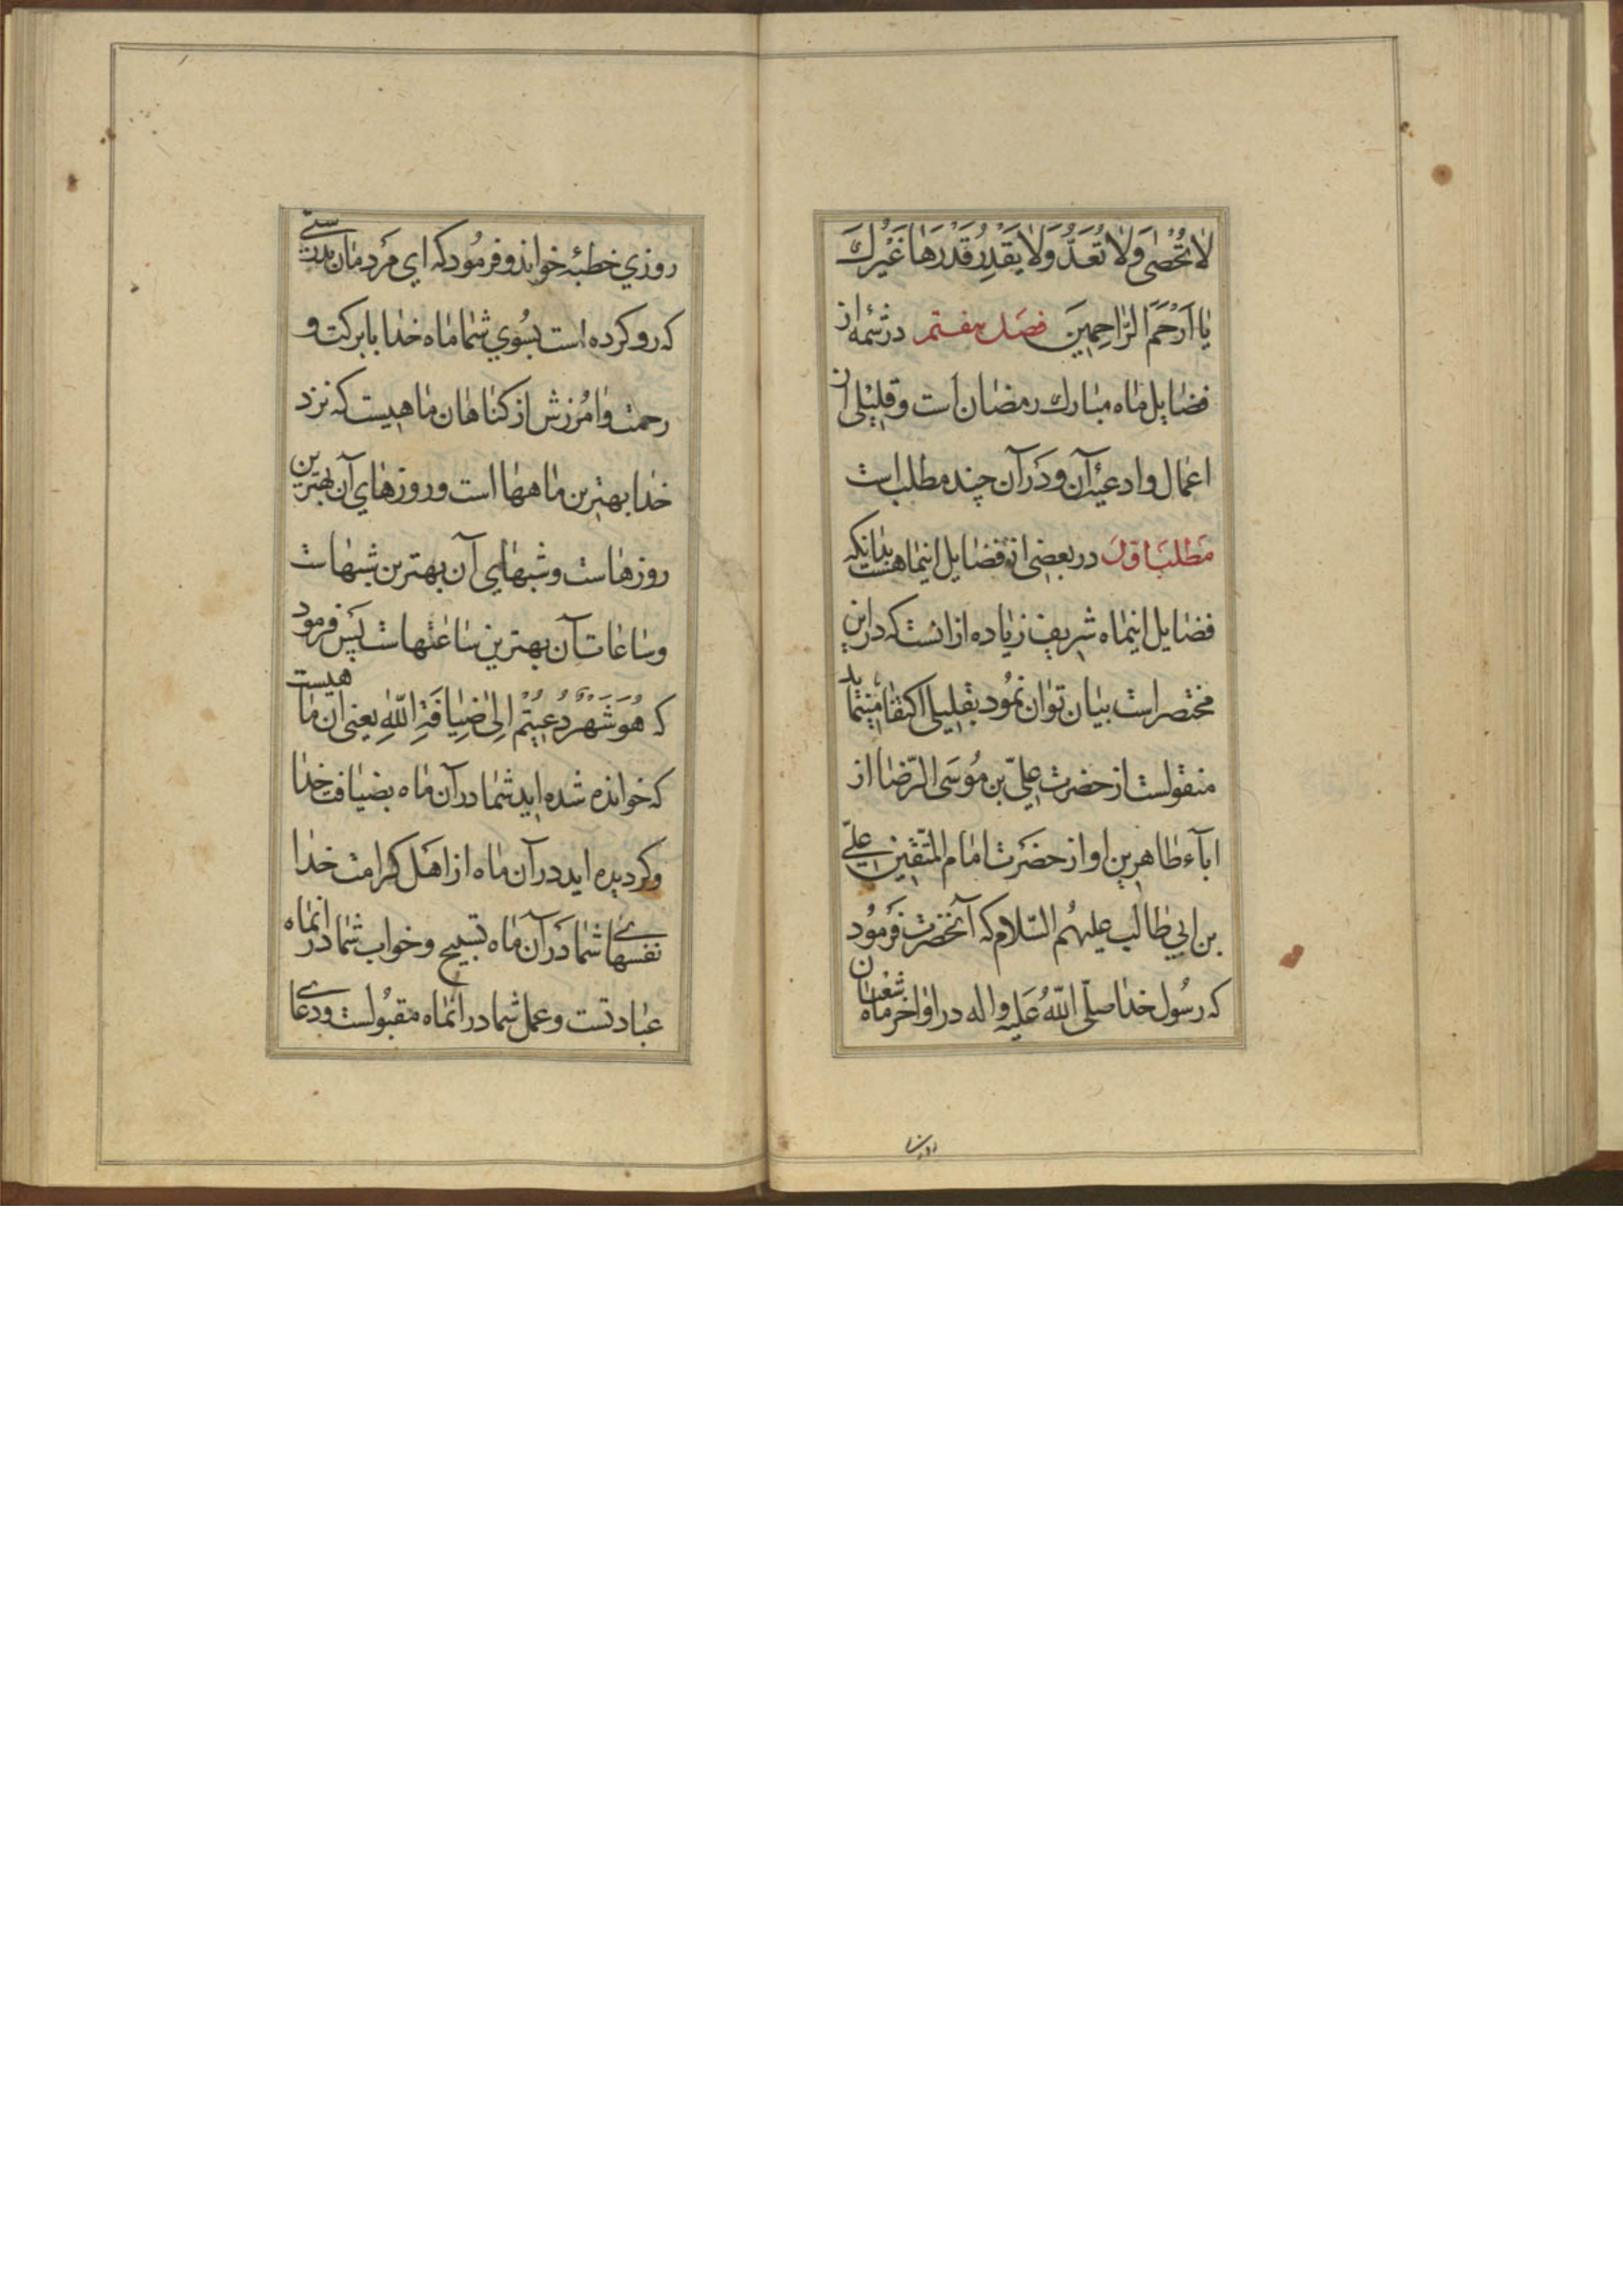 لَا تُحْصٰى وَلَا تُعَدُّ وَلَا يَقْدِرُ قَدْرَهَا غَيْرُكَ
يَا اَرْحَمَ الرَّاحِمِينَ فصل هفتم در شمهٔ از
فضایل ماه مبارك رمضان است و قلیلی از
اعمال و ادعیهٔ آن و در آن چند مطلب است
مطلب اول در بعضی از فضایل اینماهست بدانکه
فضایل اینماه شریف زیاده از انست که در این
مختصر است بیان توان نمود بقلیلی اکتفا مینماید
منقولست از حضرت علیّ بن مُوسَی الرّضا از
اباء طاهرین او از حضرت امام المتّقین علیّ
بن ابی طالب علیهُم السّلام که آنحضرت فرمُود
که رسُول خدا صلّی اللّهُ عَلیه واله در اواخر ماه شعبان
روزي خطبهٔ خواند و فرمُود که اي مَردمان بدرستی
که رو کرده است بسُوي شما ماه خدا با برکت و
رحمت و امُرزش از کناهان ماهیست که نزد
خدا بهترین ماهها است و روزهاي آن بهترین
روزهاست و شبهاي آن بهترین شبهاست
و ساعات آن بهترین ساعتهاست پس فرمود
که هُوَ شَهْرٌ دُعِیتُمْ اِلیٰ ضِیَافَةِ اللّهِ یعنی ان ماهیست
که خوانده شده اید شما در آن ماه بضیافت خدا
و کردیده اید در آن ماه از اهَل کرامت خدا
نفسهای شما دَر آن ماه تسبیح و خواب شما در انماه
عبادتست و عمل شما در انماه مقبُولست و دعای